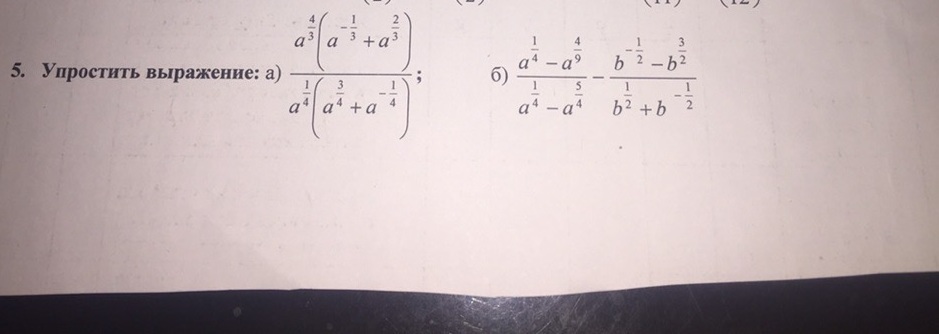 (11) (12)
5. Упростить выражение: а) \frac{a^{\frac{4}{3}}\left(a^{-\frac{1}{3}}+a^{\frac{2}{3}}\right)}{a^{\frac{1}{4}}\left(a^{\frac{3}{4}}+a^{-\frac{1}{4}}\right)}; б) \frac{a^{\frac{1}{4}}-a^{\frac{4}{9}}}{a^{\frac{1}{4}}-a^{\frac{5}{4}}}-\frac{b^{-\frac{1}{2}}-b^{\frac{3}{2}}}{b^{\frac{1}{2}}+b^{-\frac{1}{2}}}